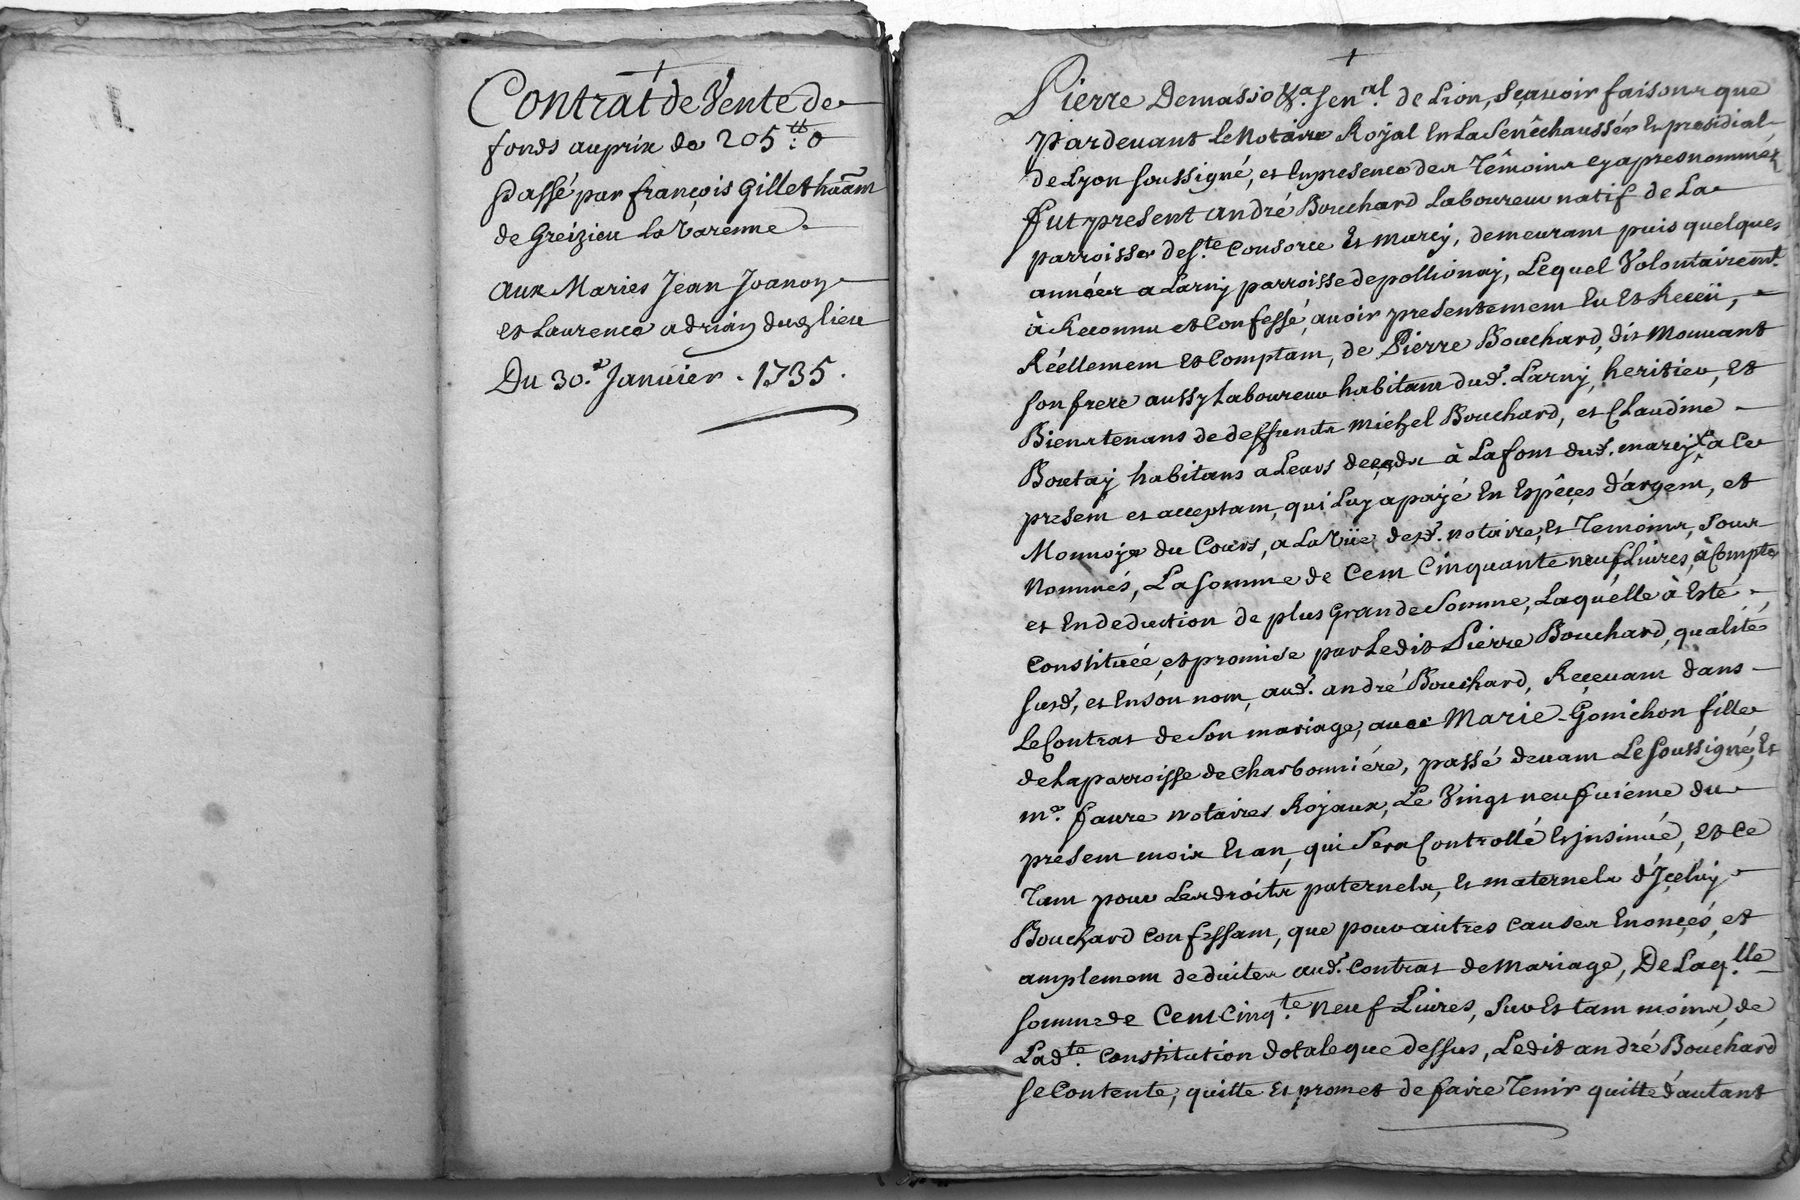 Contrat de Vente de
fonds au prix de 205 tt : 0
passé par françois Gillet haãm
de Greizieu la Varenne
aux Maries Jean Joanon
et Laurence adrian dud. lieu
Du 30.e Janvier . 1735 .
Pierre Demasso &a. Sen.ral de Lion, Sçavoir faisons que
pardevant Le Notaire Royal En La Senêchaussée Et presidial
de Lyon soussigné, et En presence des Témoins cy apres nommez
fut present andré Bouchard Laboureur natif de La
parroisse de S.te Consorce Et marcy, demeurant puis quelques
années a Larny parroisse de pollionay, Lequel Volontairemt.
à Reconnu et Confessé, avoir presentement Eu Et Receü,
Réellement Et Comptam, de Pierre Bouchard, dit Mouvant
son frere aussy Laboureur habitam dud. Larny, heritier, Et
Biens tenans de deffunts Michel Bouchard, et Claudine
Boutay habitans a Leurs deceds à La font dud. marcy a Ce
present et acceptam, qui Luy a payé En Espêces d'argem, et
Monnoye du Cours, a La Vüe desd. notaire, Et Temoins, Sous
Nommés, La somme de Cem Cinquante neuf Livres, à Compte
et En deduction de plus Grande Somme, Laquélle à Esté
Constituée, et promise par Ledit Pierre Bouchard, qualité
susd, et En son nom, aud. andré Bouchard, Reçevam dans
Le Contrat de Son mariage, avec Marie Gonichon fille
de La parroisse de Charbonniére, passé devam Le soussigné, Et
m.e faure notaires Royaux, Le Vingt neufvième du
présem mois Et an, qui Sera Controllé Et insinué, Et Ce
Tam pour Les droits paternels, Et maternels d'Jceluy
Bouchard Confessam, que pour autres Causes Enonçés, et
amplemem deduites aud. Contrat de Mariage, De Laq.lle
somme de Cem Cinq.te Neuf Livres, Sur Et tam moins, de
Lad.te Constitution dotale que dessus, Ledit andré Bouchard
se Contente, quitte Et promet de faire Tenir quitte d'autant